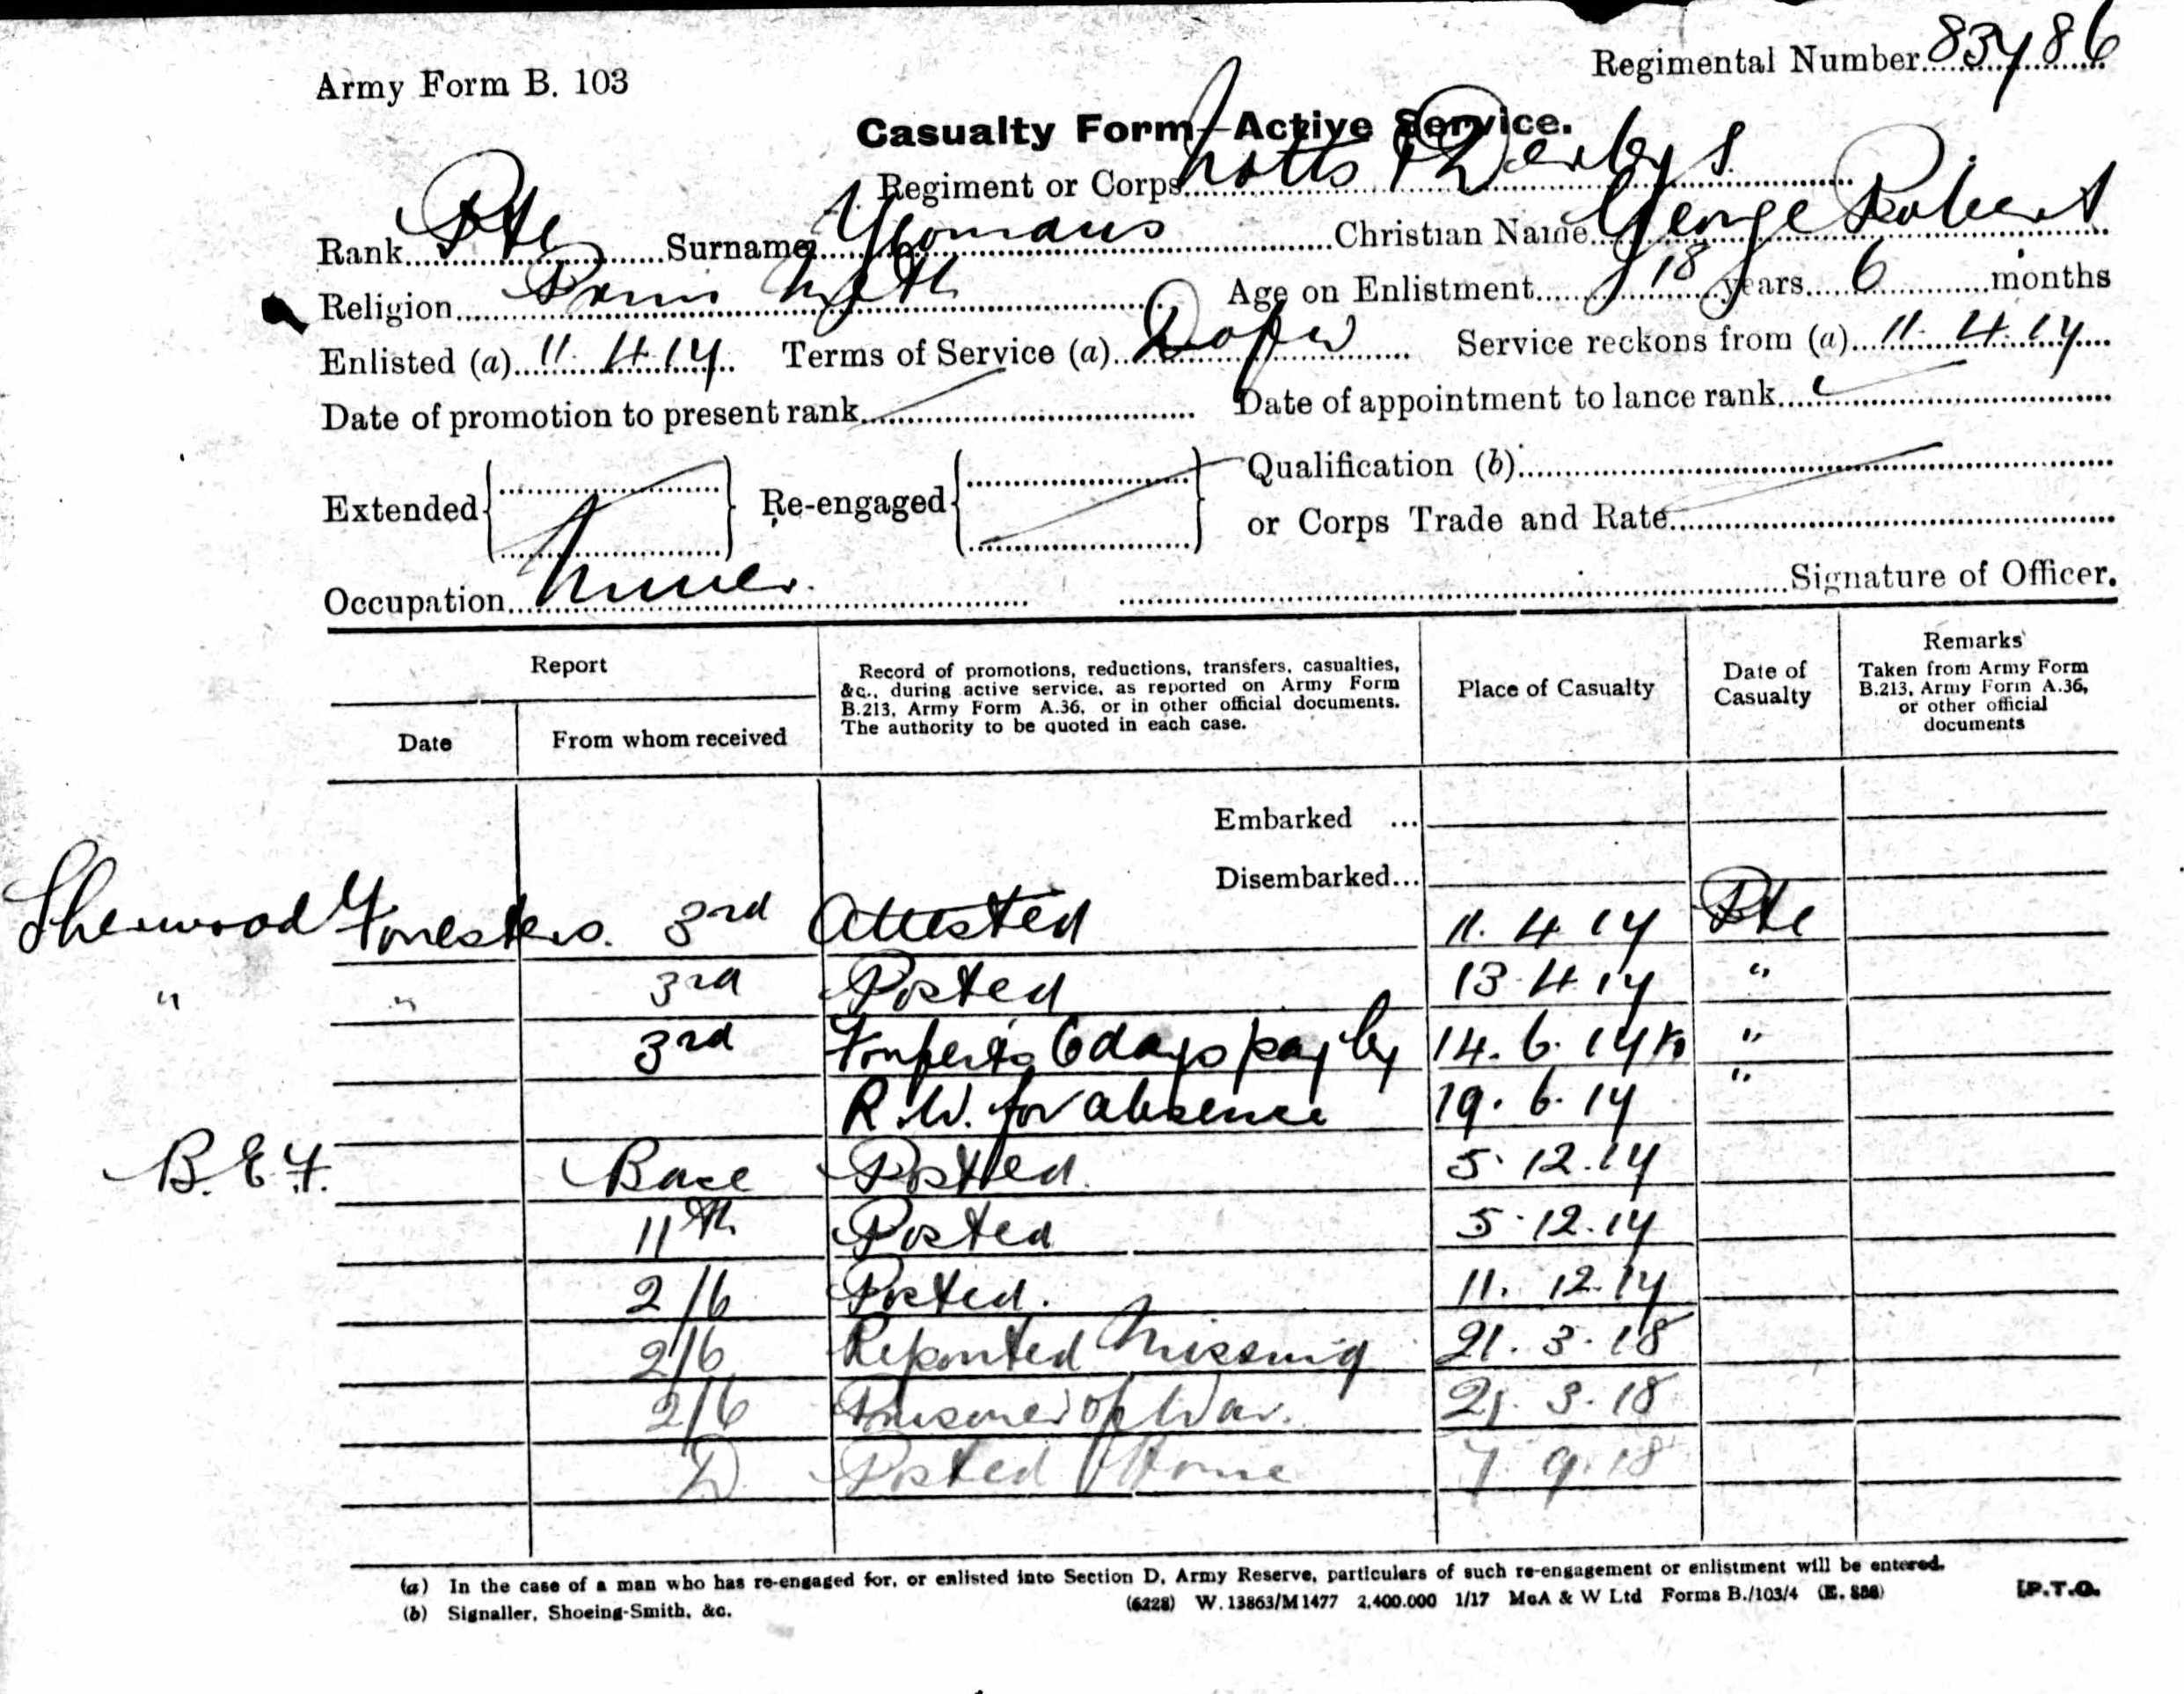 Army Form B. 103
Regimental Number 83786
Casualty Form—Active Service.
Regiment or Corps Notts & Derbys
Rank Pte Surname Yeomans Christian Name George Robert
Religion Prim Meth Age on Enlistment 18 years 6 months
Enlisted (a) 11.4.17 Terms of Service (a) Dofw Service reckons from (a) 11.4.17
Date of promotion to present rank Date of appointment to lance rank
Extended Re-engaged Qualification (b)
or Corps Trade and Rate
Occupation Miner. Signature of Officer.
Report
Date
From whom received
Record of promotions, reductions, transfers, casualties,
&c., during active service, as reported on Army Form
B.213, Army Form A.36, or in other official documents.
The authority to be quoted in each case.
Place of Casualty
Date of
Casualty
Remarks
Taken from Army Form
B.213, Army Form A.36,
or other official
documents
Embarked ...
Disembarked...
Sherwood Foresters. 3rd Attested 11.4.17 Pte
" " 3rd Posted 13.4.17 "
3rd Forfeits 6 days pay by 14.6.17 to "
R.W. for absence 19.6.17 "
B.E.F. Base Posted. 5.12.17
11th Posted 5.12.17
2/6 Posted. 11.12.17
2/6 Reported Missing 21.3.18
2/6 Prisoner of War. 21.3.18
D. Posted Home 7.9.18
(a) In the case of a man who has re-engaged for, or enlisted into Section D, Army Reserve, particulars of such re-engagement or enlistment will be entered.
(b) Signaller, Shoeing-Smith, &c. (6228) W.13863/M1477 2,400,000 1/17 McA & W Ltd Forms B./103/4 (E. 888) [P.T.O.